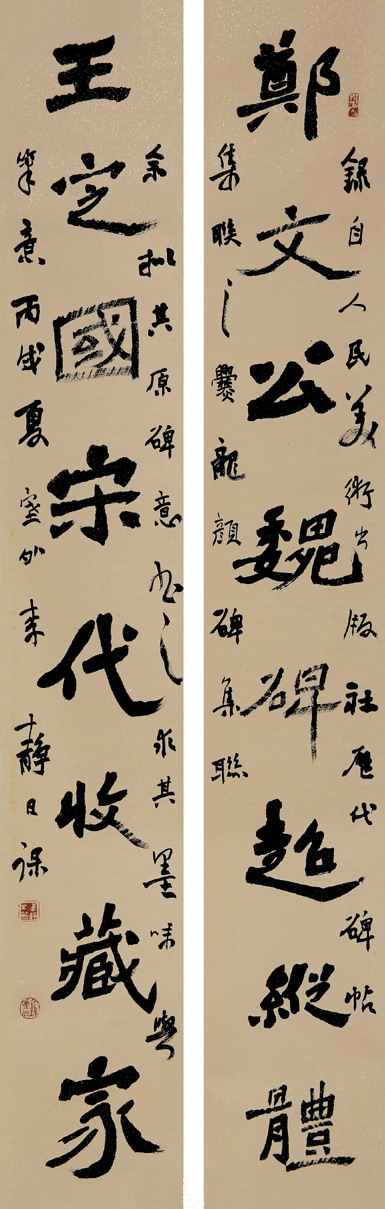 鄭文公魏碑超縱體
錄自人民美術出版社歷代碑帖
集聯之爨龍顏碑集聯
王定國宋代收藏家
余拟其原碑意书之求其墨味與
筆意丙戌夏室外来静日课